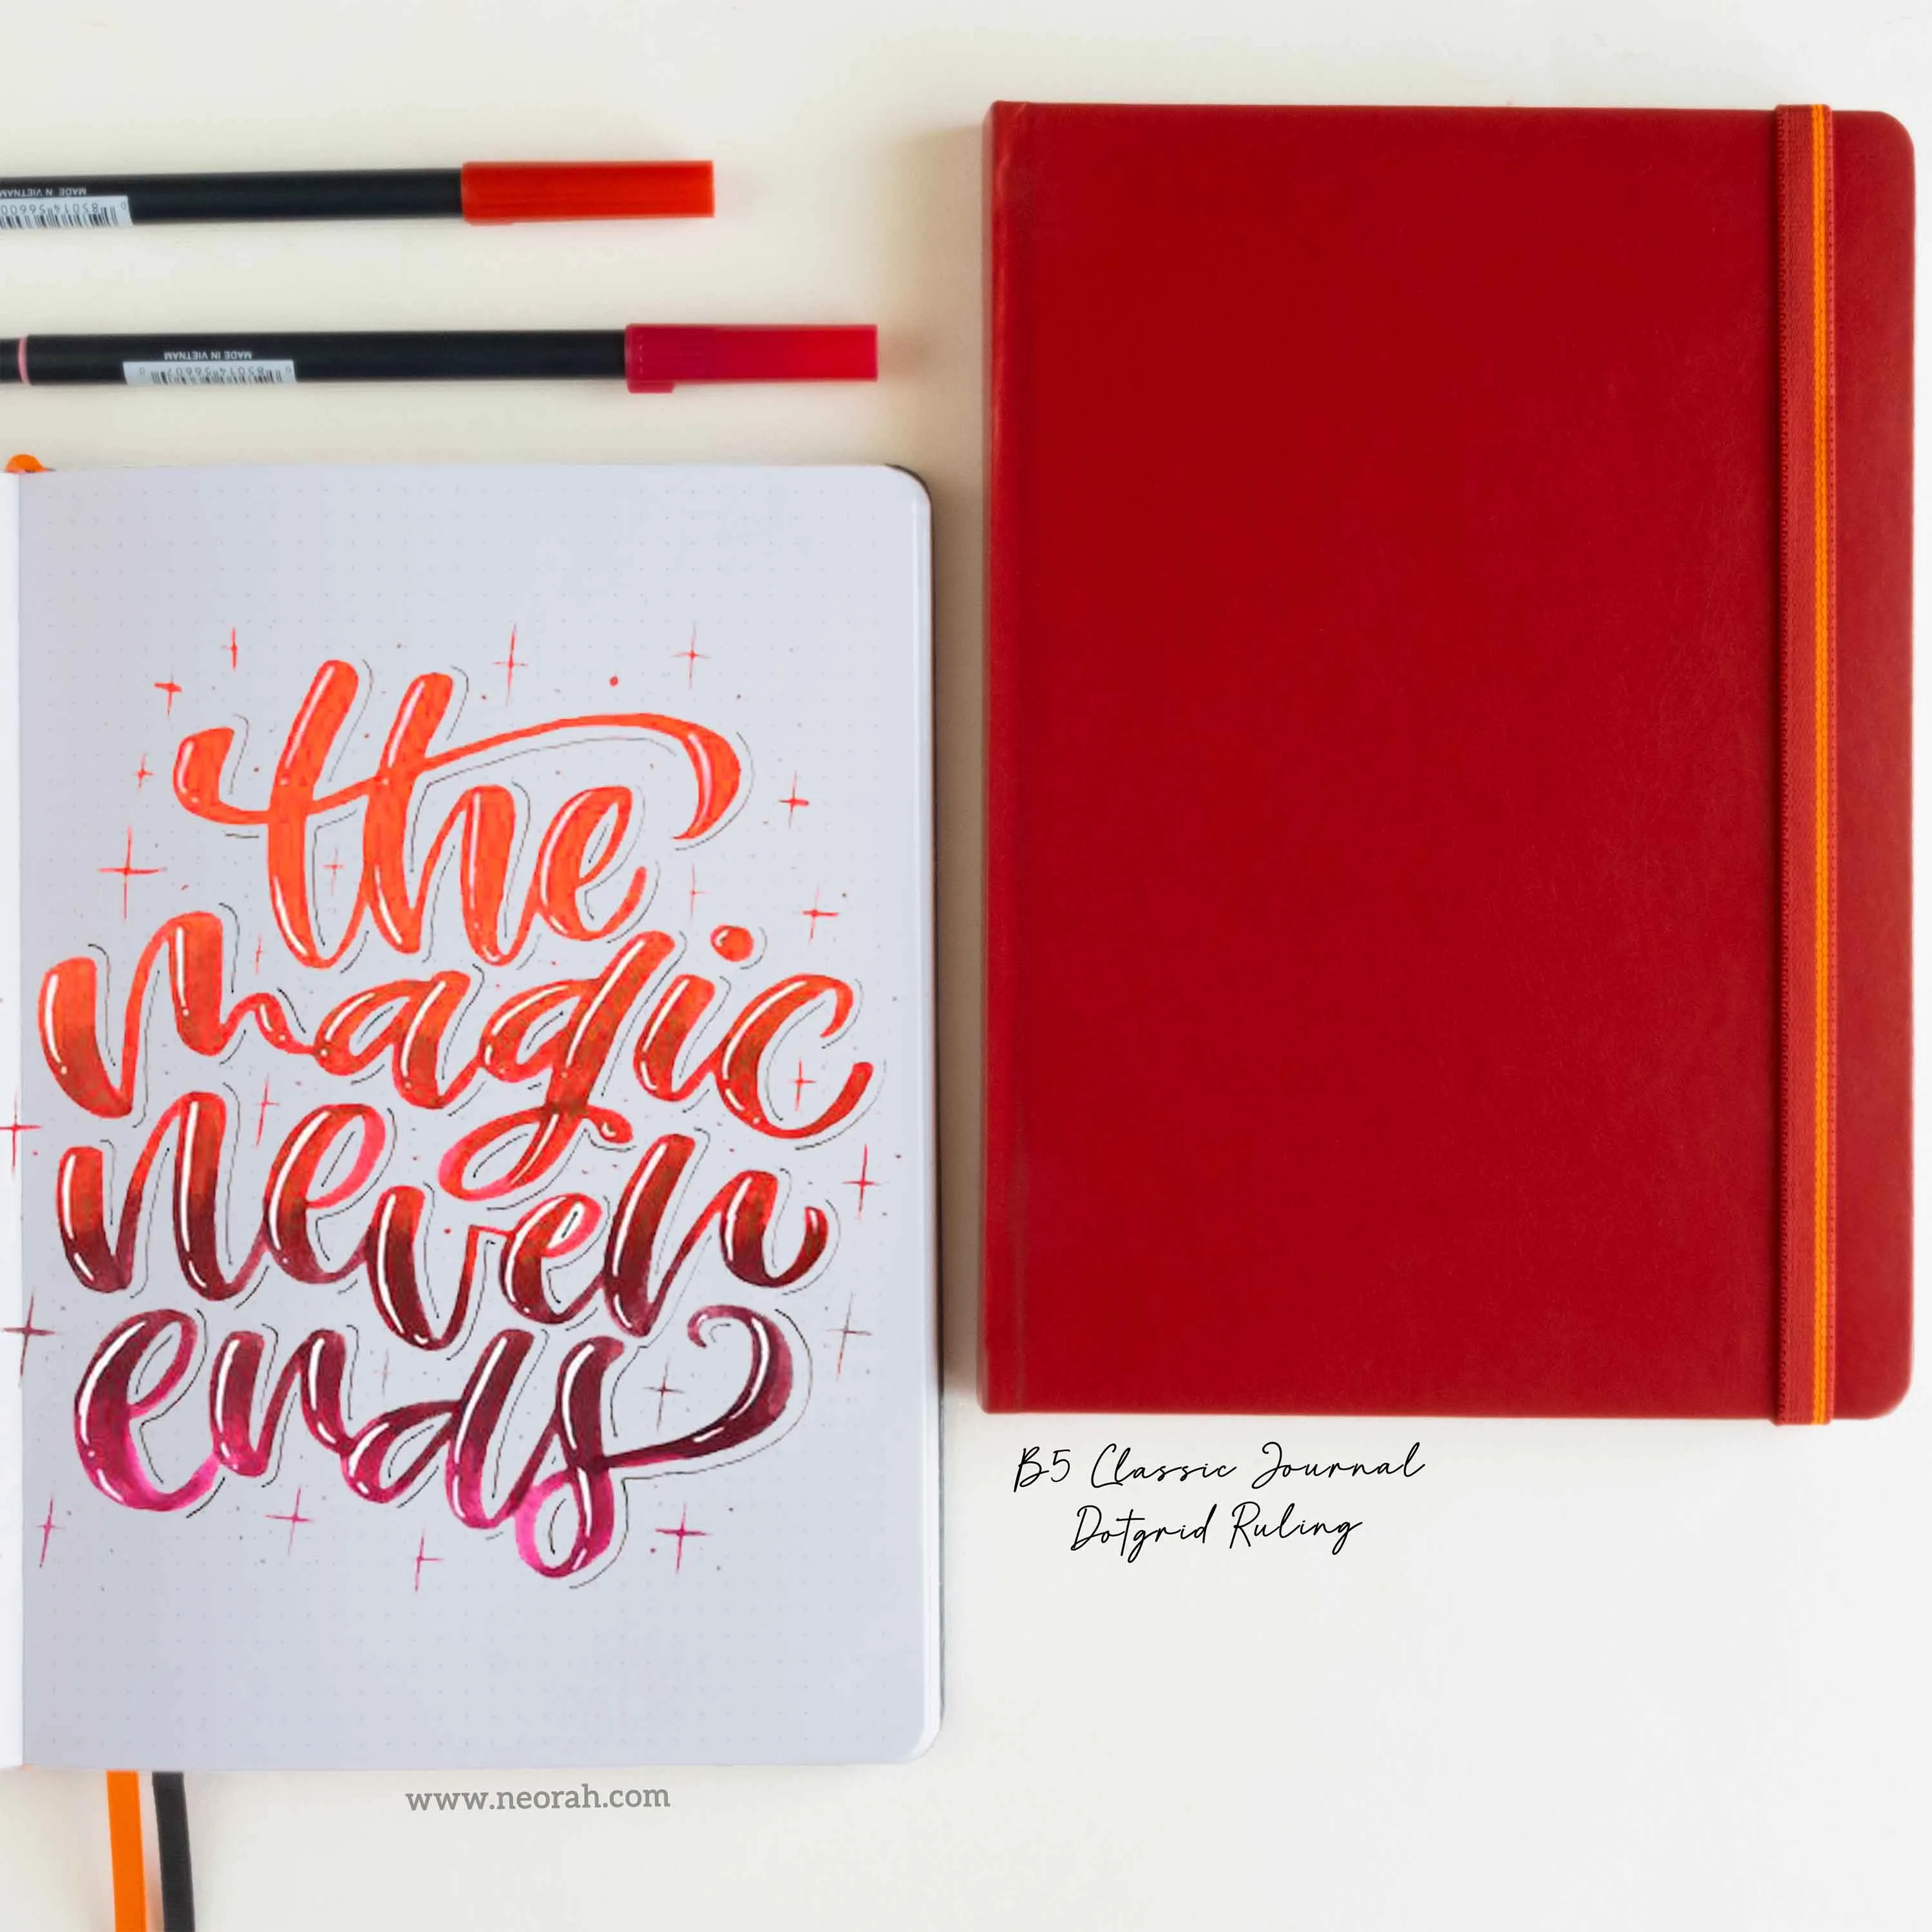 MADE IN VIETNAM
MADE IN VIETNAM
the
magic
never
ends
B5 Classic Journal
Dotgrid Ruling
www.neorah.com